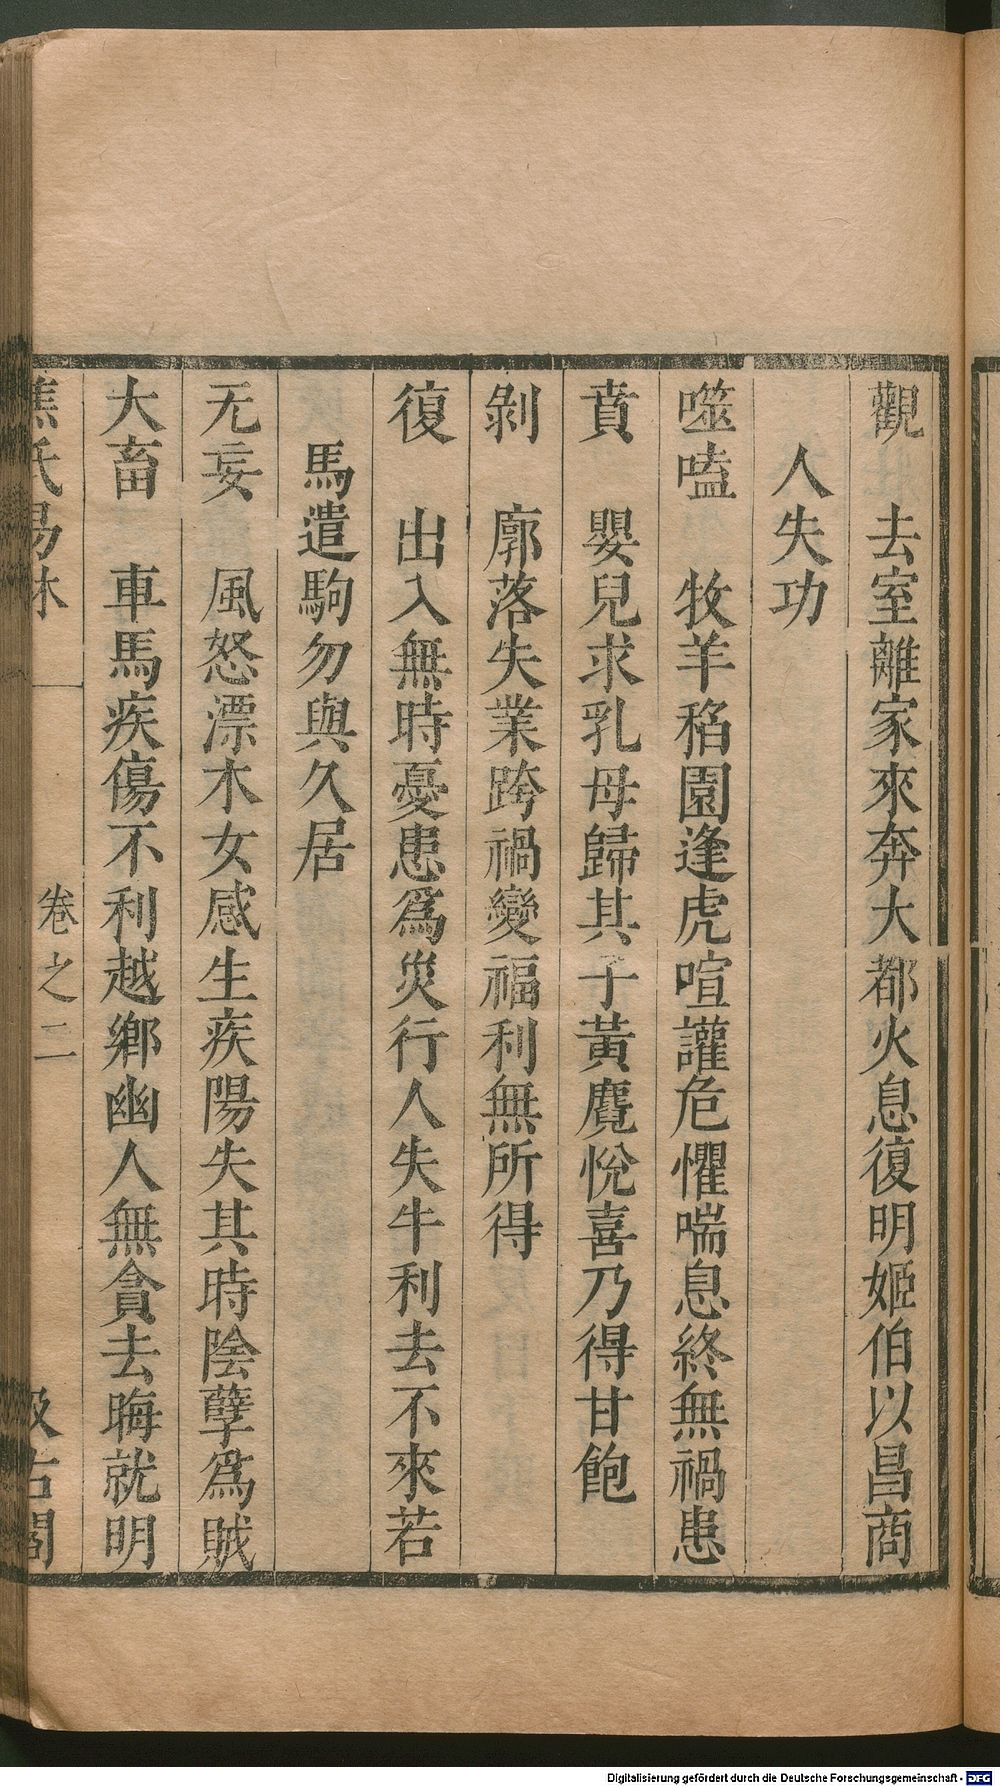 觀　去室離家來奔大都火息復明姬伯以昌商
人失功
噬嗑　牧羊稻園逢虎喧讙危懼喘息終無禍患
賁　嬰兒求乳母歸其子黃麑悅喜乃得甘飽
剝　廓落失業跨禍變福利無所得
復　出入無時憂患爲災行人失牛利去不來若
馬遣駒勿與久居
无妄　風怒漂木女感生疾陽失其時陰孽爲賊
大畜　車馬疾傷不利越鄉幽人無貪去晦就明
焦氏易林　卷之二　汲古閣
Digitalisierung gefördert durch die Deutsche Forschungsgemeinschaft - DFG